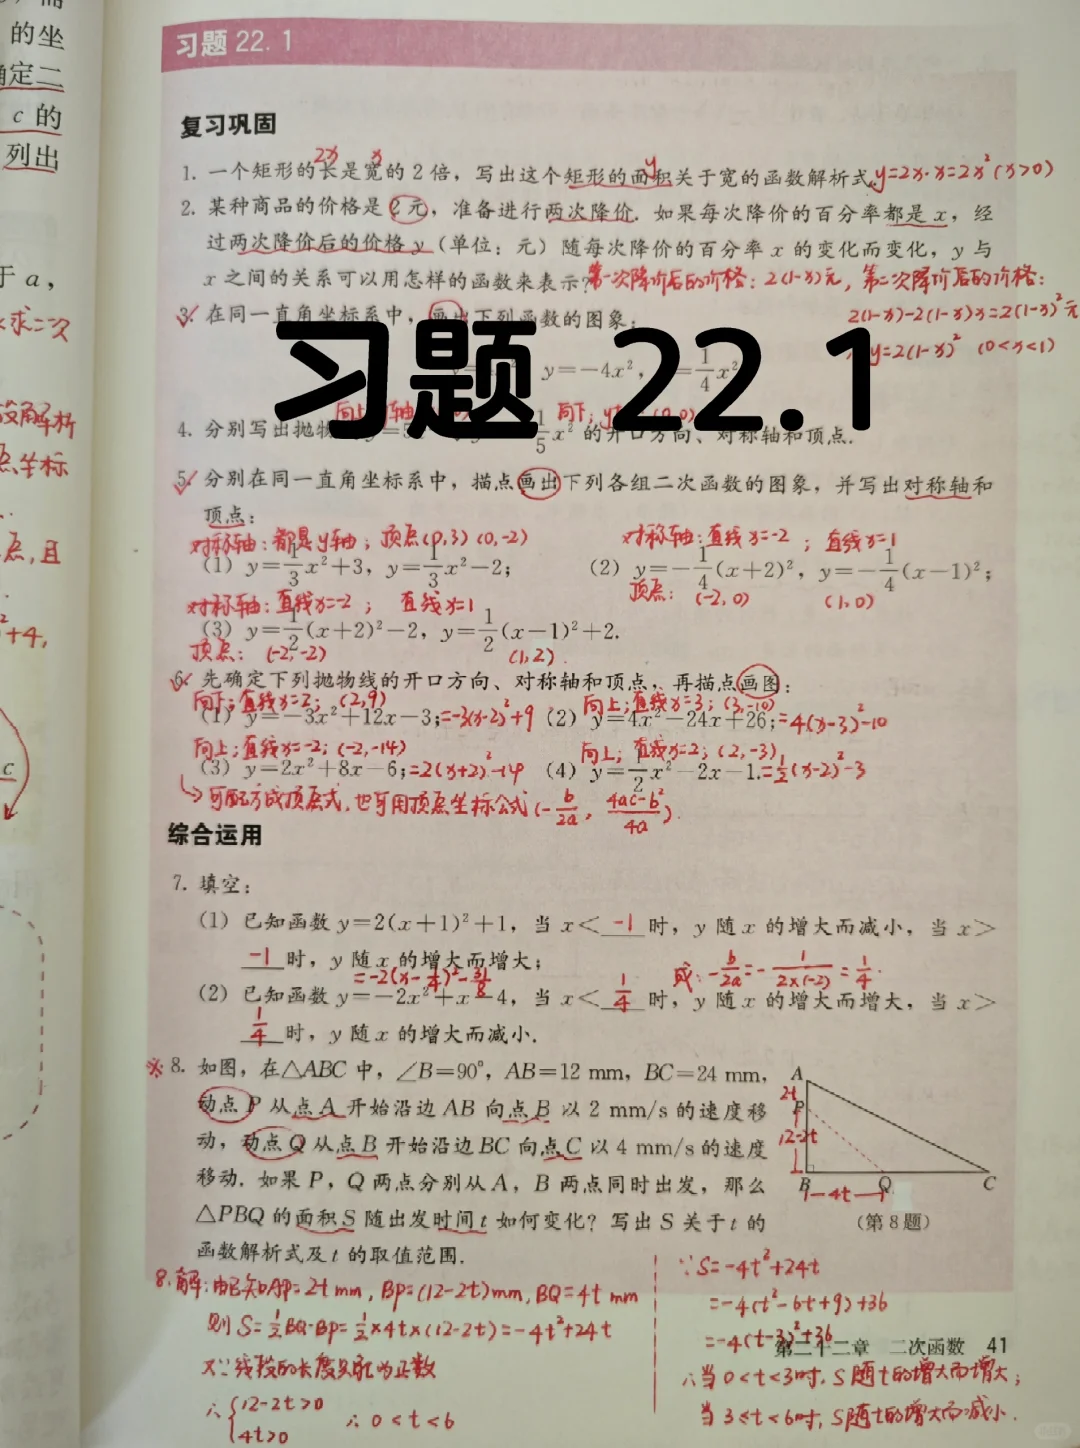 的坐
确定二
c 的
列出
于 a，
求二次
点坐标
点,且
+4,
c
习题 22.1
复习巩固
2x x y
1. 一个矩形的长是宽的 2 倍，写出这个矩形的面积关于宽的函数解析式. y=2x·x=2x²(x>0)
2. 某种商品的价格是 2 元，准备进行两次降价. 如果每次降价的百分率都是 x，经
过两次降价后的价格 y（单位：元）随每次降价的百分率 x 的变化而变化，y 与
x 之间的关系可以用怎样的函数来表示？第一次降价后的价格：2(1-x)元，第二次降价后的价格：
2(1-x)-2(1-x)x=2(1-x)²元
y=2(1-x)² (0<x<1)
3. 在同一直角坐标系中，画出下列函数的图象：
习题 22.1
y=-4x²，y=1/4x²
向下; y (0,0)
4. 分别写出抛物 1/5x² 的开口方向、对称轴和顶点.
5. 分别在同一直角坐标系中，描点画出下列各组二次函数的图象，并写出对称轴和
顶点：
对称轴：都是y轴；顶点(0,3) (0,-2)
对称轴：直线x=-2 ； 直线x=1
(1) y=1/3x²+3，y=1/3x²-2；
(2) y=-1/4(x+2)²，y=-1/4(x-1)²；
顶点： (-2,0) (1,0)
对称轴：直线x=-2 ； 直线x=1
(3) y=1/2(x+2)²-2，y=1/2(x-1)²+2.
顶点： (-2,-2) (1,2).
6. 先确定下列抛物线的开口方向、对称轴和顶点，再描点画图：
向下；直线x=2；(2,9) 向上；直线x=3；(3,-10)
(1) y=-3x²+12x-3；=-3(x-2)²+9 (2) y=4x²-24x+26；=4(x-3)²-10
向上；直线x=-2；(-2,-14) 向上；直线x=2；(2,-3)
(3) y=2x²+8x-6；=2(x+2)²-14 (4) y=1/2x²-2x-1.=1/2(x-2)²-3
可配方成顶点式,也可用顶点坐标公式(-b/2a, 4ac-b²/4a).
综合运用
7. 填空：
(1) 已知函数 y=2(x+1)²+1，当 x< -1 时，y 随 x 的增大而减小，当 x>
-1 时，y 随 x 的增大而增大；
=-2(x-1/4)²-31/8 或：-b/2a=-1/2×(-2)=1/4.
(2) 已知函数 y=-2x²+x-4，当 x< 1/4 时，y 随 x 的增大而增大，当 x>
1/4 时，y 随 x 的增大而减小.
※8. 如图，在△ABC 中，∠B=90°，AB=12 mm，BC=24 mm，
动点 P 从点 A 开始沿边 AB 向点 B 以 2 mm/s 的速度移
动，动点 Q 从点 B 开始沿边 BC 向点 C 以 4 mm/s 的速度
移动. 如果 P，Q 两点分别从 A，B 两点同时出发，那么
△PBQ 的面积 S 随出发时间 t 如何变化？写出 S 关于 t 的
函数解析式及 t 的取值范围.
A
2t
P
12-2t
B Q C
4t
（第 8 题）
8.解：由已知AP=2t mm, BP=(12-2t)mm, BQ=4t mm
则S=1/2BQ·BP=1/2×4t×(12-2t)=-4t²+24t
又∵线段的长度只能为正数
∴{12-2t>0
4t>0
∴ 0<t<6
∵S=-4t²+24t
=-4(t²-6t+9)+36
=-4(t-3)²+36
第二十二章 二次函数 41
∴当0<t<3时,S随t的增大而增大；
当3≤t<6时,S随t的增大而减小.